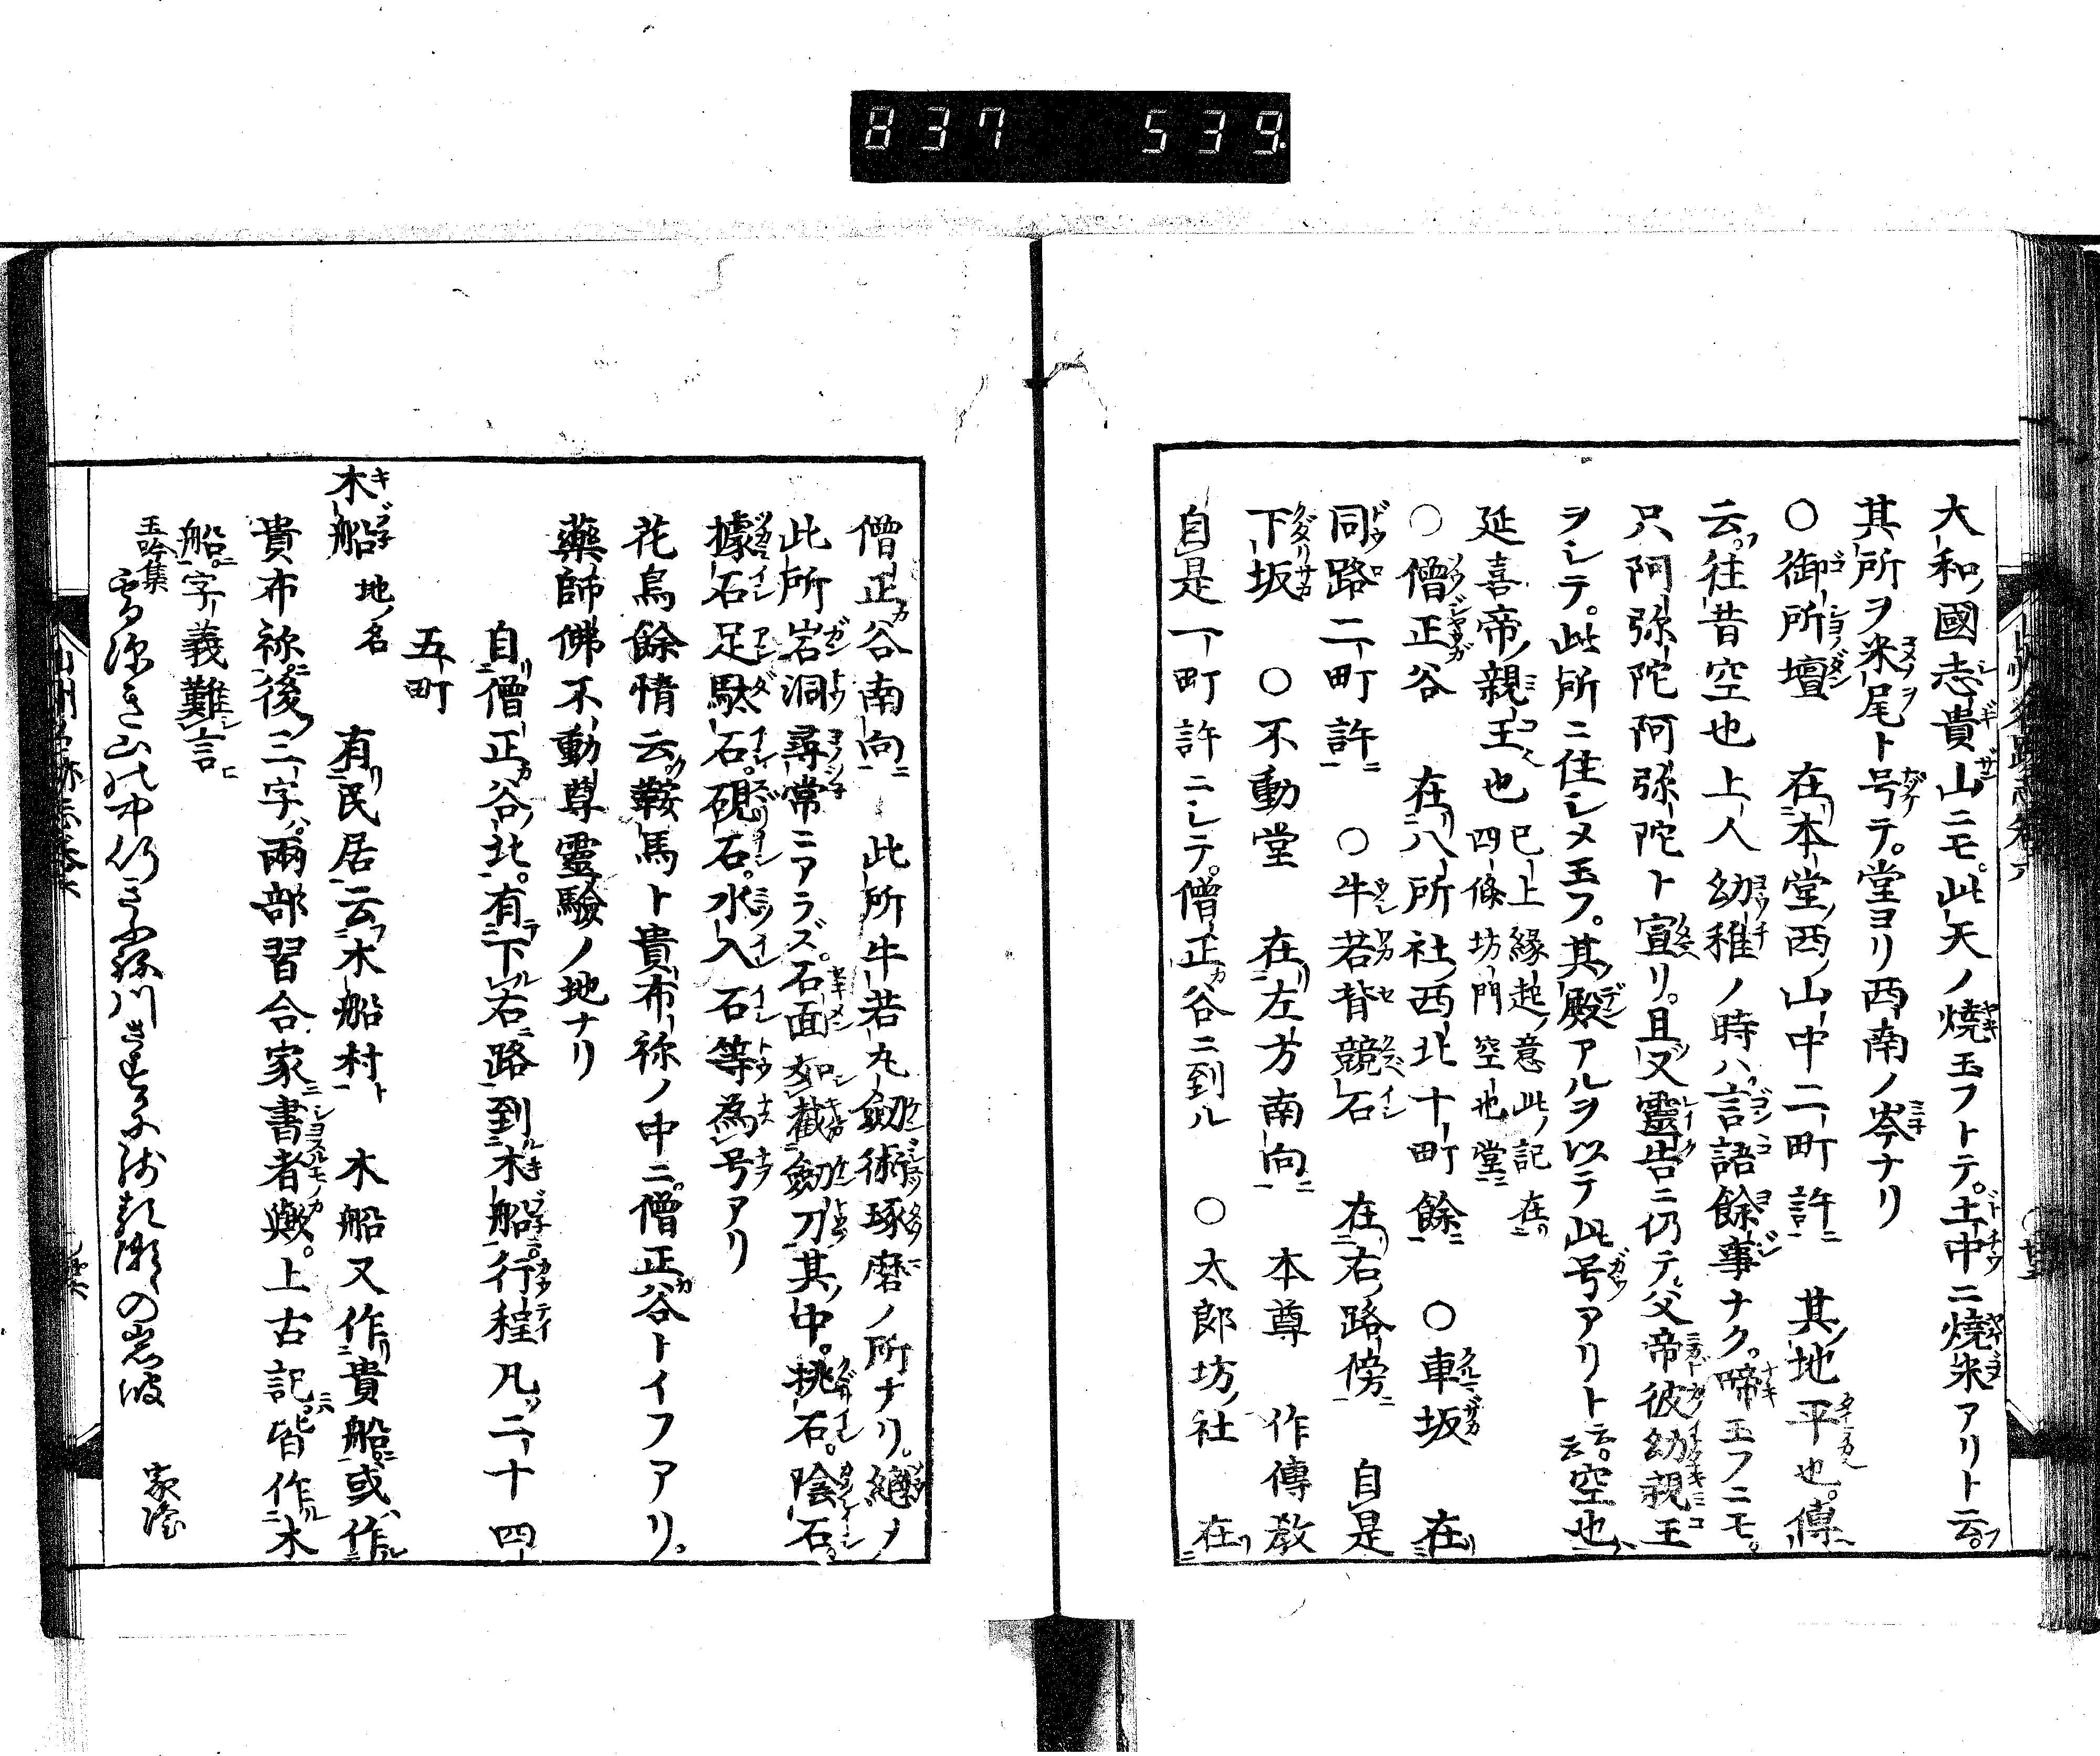 837 539
大和國志貴山ニモ。此天ノ燒玉フトテ。土中ニ燒米アリト云。
其所ヲ米尾ト号テ。堂ヨリ西南ノ岑ナリ
○御所壇 在本堂西ノ山中二町許 其地平也。傳
云。往昔空也上人幼稚ノ時ハ。言語餘事ナク。啼玉フニモ。
只阿弥陀阿弥陀ト宣リ。且又靈告ニ仍テ。父帝彼幼親王
ヲシテ。此所ニ住シメ玉フ。其殿アルヲ以テ此号アリト云。空也
延喜帝ノ親王也 已上緣起ノ意此ノ記在
四條坊門空也堂
○僧正谷 在八所社西北十町餘 ○車坂 在
同路二町許 ○牛若背競石 在右路傍 自是
下坂 ○不動堂 在左方南向 本尊 作傳敎
自是一町許ニシテ。僧正谷ニ到ル ○太郎坊社 在
僧正谷南向 此所牛若丸劔術琢磨ノ所ナリ。總メ
此所岩洞尋常ニアラズ。石面如截劔刀其中。挑石。陰石。
據石足駄石。硯石。水入石等爲号アリ
花鳥餘情云鞍馬ト貴布祢ノ中ニ。僧正谷トイフアリ。
藥師佛不動尊靈驗ノ地ナリ
自僧正谷北。有下右路到木船。行程凡二十四
五町
木船 地ノ名 有民居云木船村 木船又作貴船或作
貴布祢。後三字。兩部習合家書者歟。上古記皆作木
船。字義難言
玉吟集
雪深き山の中行き
川 瀬の岩波 家隆